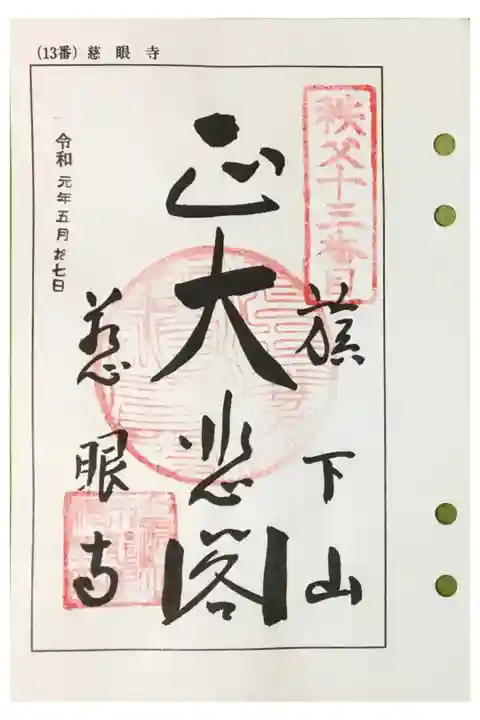 (13番) 慈眼寺
秩父十三番目
旗下山
正大悲閣
慈眼寺
令和元年五月拾七日